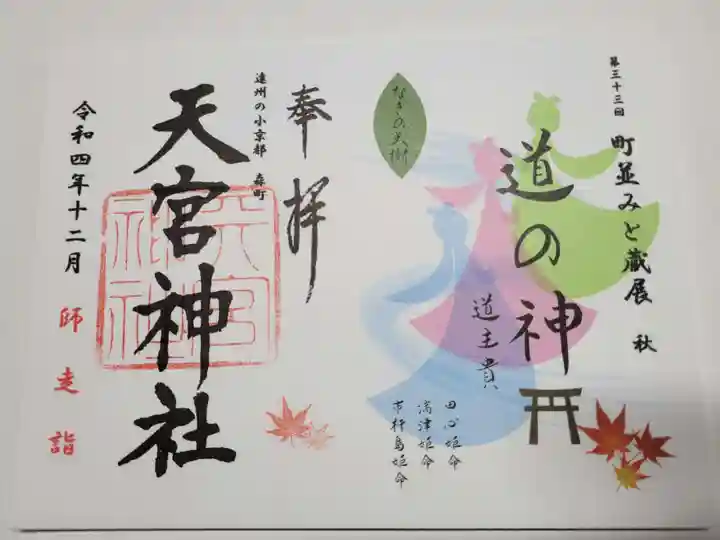 第三十三回
町並みと蔵展 秋
道の神
道主貴
田心姫命
湍津姫命
市杵島姫命
なぎの大樹
奉拝
遠州の小京都 森町
天宮神社
天宮神社
令和四年十二月
師走詣